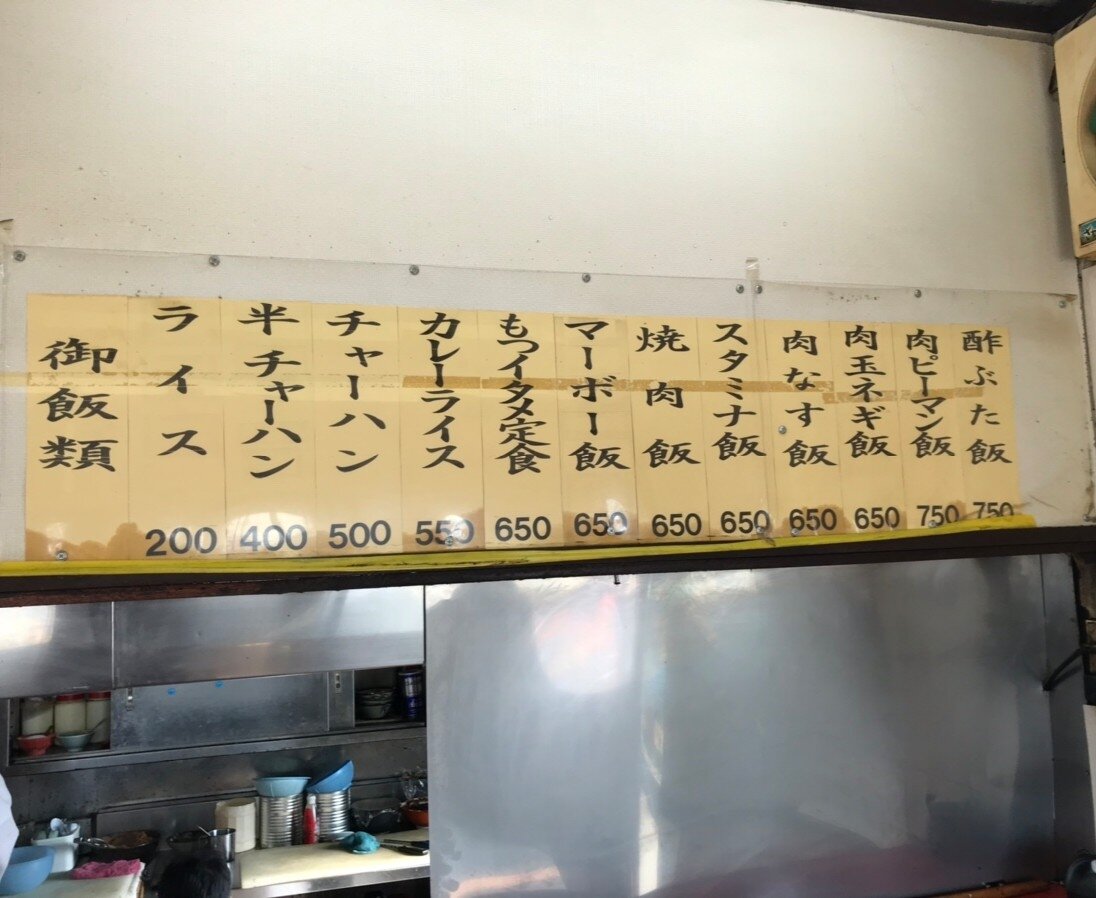 御飯類
ライス 200
半チャーハン 400
チャーハン 500
カレーライス 550
もつイタメ定食 650
マーボー飯 650
焼肉飯 650
スタミナ飯 650
肉なす飯 650
肉玉ネギ飯 650
肉ピーマン飯 750
酢ぶた飯 750